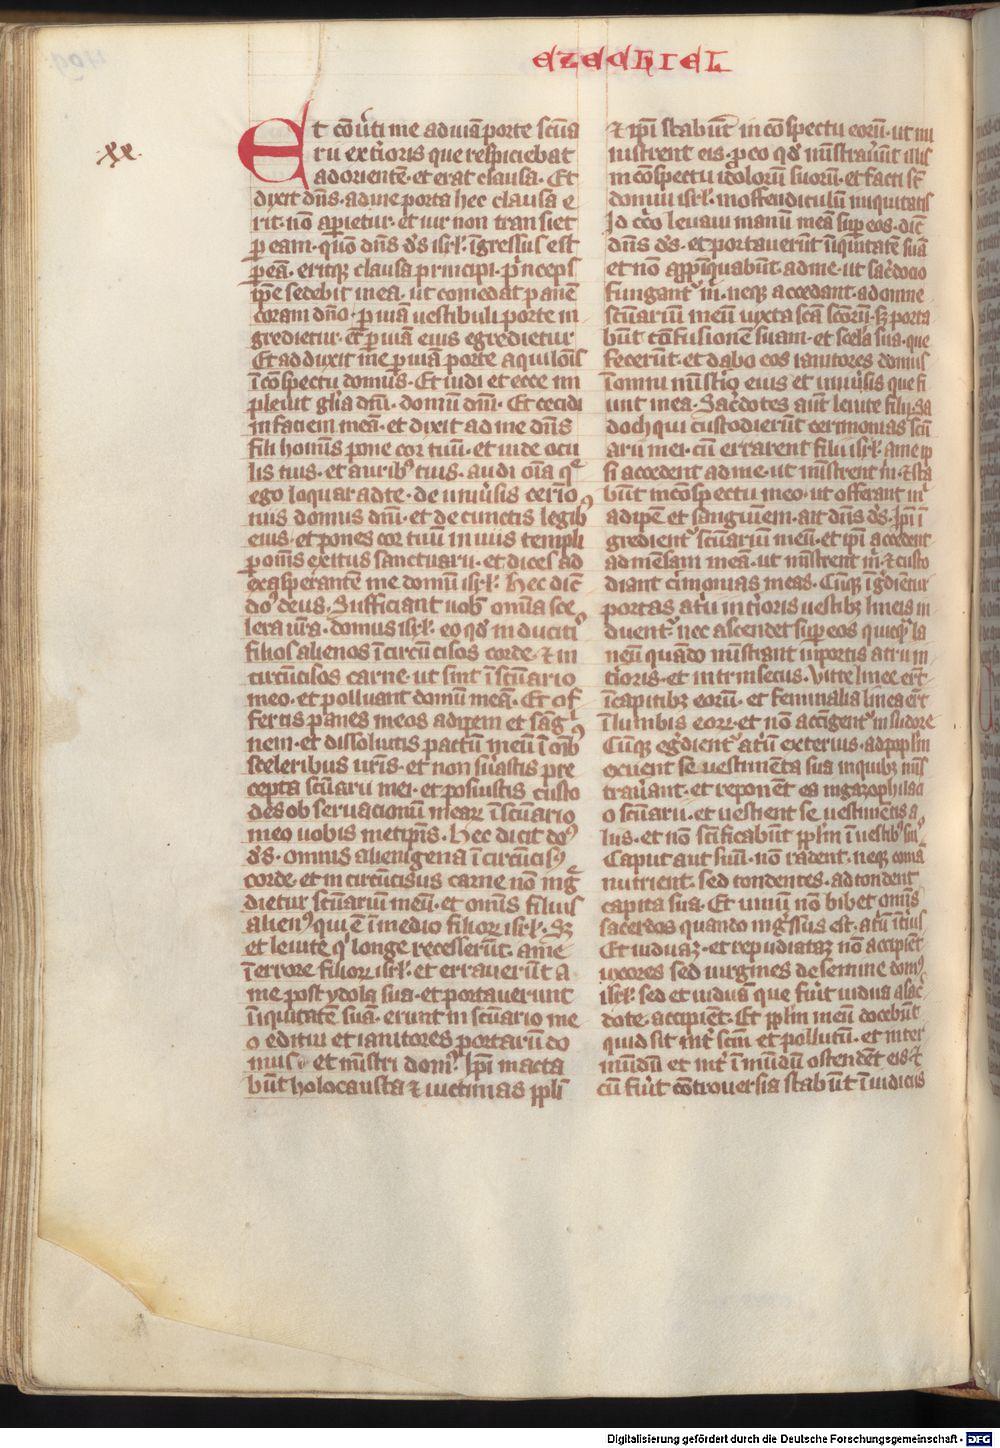 ezechiel
xx.
Et cōu̾ti me ad uiā porte sc̄ua
rii ext̾ioris que respiciebat
ad orientē · et erat clausa · Et
dixit dn̄s · ad me porta hec clausa e
rit · nō ap̾ietur · et uir non transiet
ꝑ eam · quō dn̄s ds̄ isrl̄ · īgressus est
ꝑ eā · eritqꝫ clausa principi · p̾nceps
ip̄e sedebit in ea · ut comedat panē
coram dn̄o · ꝑ uiā uestibuli porte in
gredietur · et ꝑ uiā eius egredietur
Et adduxit me ꝑ uiā porte aquilōis
ī cōspectu domus · Et uidi et ecce im
pleuit gl̄ia dn̄i · domū dn̄i · Et cecidi
in faciem meā · et dixit ad me dn̄s
fili homīs pone cor tuū · et uide ocu
lis tuis · et aurib᷒ tuis · audi oīa q̄
ego loquar ad te · de uniu̾sis cerīo
niis domus dn̄i · et de cunctis legib᷒
eius · et pones cor tuū in uiis templi
ꝑ om̄s exitus sanctuarii · et dices ad
exasperantē me domū isrl̄ · Hec dic̄
do᷒ deus · Sufficiant uob̄ om̄ia sce
lera ur̄a · domus isrl̄ · eo qd̾ inducit᷒
filios alienos ī circūcisos corde · ⁊ in
circūcisos carne · ut sint ī sc̄uario
meo · et polluant domū meā · Et of
fertis panes meos adipem et sāg̾
nem · et dissoluitis pactū meū ī oīb᷒
sceleribus ur̄is · et non su̾astis pre
cepta sc̄uarii mei · et posuistis custo
des obseruacionū mearꝝ ī sc̄uario
meo uobis metip̄is · Hec dicit do᷒
ds̄ · Omnis alienigena ī circūcis᷒
corde · et in circūcisus carne nō ing̾
dietur sc̄uariū meū · et om̄is filius
alien᷒ qui ē ī medio filiorꝝ isrl̄ · Sꝫ
et leuite q̾ longe recesserūt · a me
ī errore filiorꝝ isrl̄ · et errauerūt a
me post ydola sua · et portauerunt
īiquitatē suā · erunt in sc̄uario me
o editui et ianitores portarū do
mus · et mīstri dom᷒ · Ip̄i macta
būt holocausta ⁊ uictimas ppl̄i
⁊ ip̄i stabūt in cōspectu eorū · ut mi
nistrent eis · ꝓ eo qd̾ mīstrauūt illis
in cōspectu idolorū suorū · et facti st̄
domui isrl̄ · in offendiculū iniquitatis
Id c̾co leuaui manū meā sup̾ eos · dic̄
dn̄s ds̄ · et portauerūt īiq̾tatē suā
et nō app̾īquabūt · ad me · ut sac̾docio
fungant᷑ m̾ · neqꝫ accedant · ad omne
sc̄uariū meū iuxta sc̄a sc̄orū · sꝫ porta
būt cōfusionē suam · et scel̾a sua · que
fecerūt · et dabo eos ianitores domus
ī omni mīst̾io eius et uniu̾sis que fi
unt in ea · Sac̾dotes aūt leuite filii Sa
doch qui custodierūt cerimonias sc̄u
arii mei · cū errarent filii isrl̄ · a me ip
si accedent ad me · ut mīstrent m̾ · ⁊ sta
būt in cōspectu meo · ut offerant m̾
adipē et sanguīem · ait dn̄s ds̄ · Ip̄i ī
gredient᷑ sc̄uariū meū · et ip̄i accedent
ad mēsam meā · ut mīstrent m̾ · ⁊ custo
diant c̾imonias meas · Cūqꝫ īg̾dient᷑
portas at̾ii int̾ioris uestibꝫ lineis in
duent᷑ · nec ascendet sup̾ eos quicq̄ la
neū quādo mīstrant in portis atrii in
t̾ioris · et intrinsecus · Vitte linee er̄t
ī capitibꝫ eorū · et feminalia linea er̄t
ī lumbis eorꝝ · et nō accīgent᷑ in sudore
Cūqꝫ eg̾dient᷑ at̾ū exterius · ad poplm̄
exuent se uestimēta sua in quibꝫ mīs
trauāt · et reponēt ea in gazophilaci
o sc̄uarii · et uestient se uestimētis a
liis · et nō sc̄ificabūt ppl̄m ī uestib᷒ suis
Caput aut suū · nō radent · neqꝫ comā
nutrient · sed tondentes · ad tondent
capita sua · Et uinū nō bibet om̄is
sacerdos quando ing̾ssus est · at̾ū īt̾ius
Et uiduaꝫ · et repudiataꝫ nō accipiēt
uxores sed uirgines de semine dom᷒
isrl̄ · sed et uiduā que fūit uidua a sac̾
dote · accipiēt · Et ppl̄m meū docebūt
quid sit int̾ sc̄m et pollutū · et inter
mūdū et int̾ īmūdū ostendēt eis · ⁊
cū fūit cōtrouersia stabūt ī iudiciis
Digitalisierung gefördert durch die Deutsche Forschungsgemeinschaft - DFG